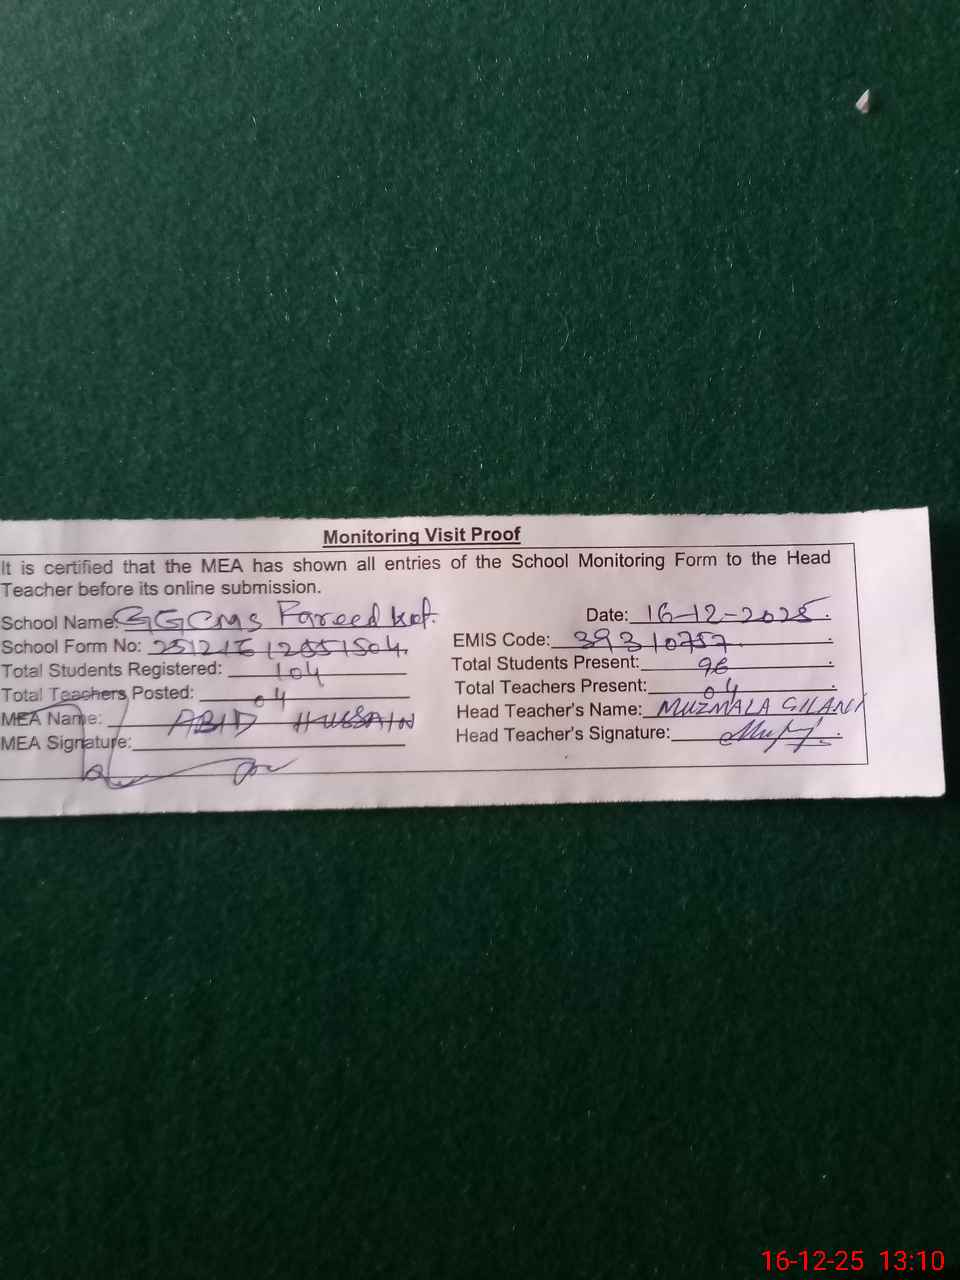 Monitoring Visit Proof
It is certified that the MEA has shown all entries of the School Monitoring Form to the Head
Teacher before its online submission.
School Name: GGCMS Fareed kot.
Date: 16-12-2025.
School Form No:
EMIS Code: 39310757
Total Students Registered: 104
Total Students Present: 96
Total Teachers Posted: 04
Total Teachers Present: 04
MEA Name: ABID HUSSAIN
Head Teacher's Name: MUZMALA
MEA Signature:
Head Teacher's Signature:
16-12-25 13:10